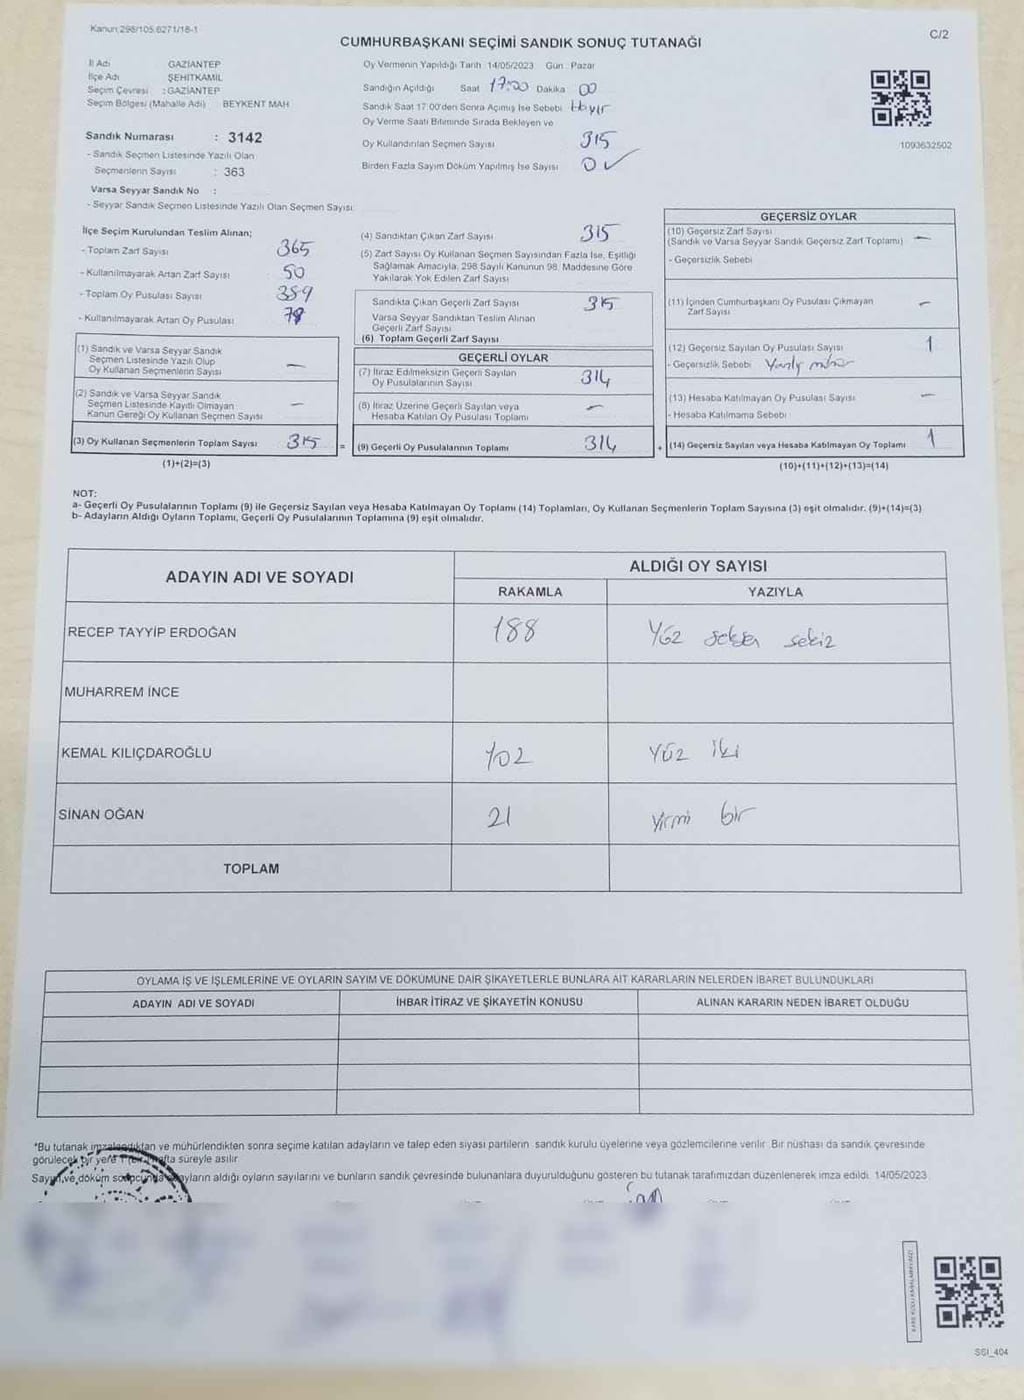 Kanun:298/105.6271/18-1
C/2
CUMHURBAŞKANI SEÇİMİ SANDIK SONUÇ TUTANAĞI
İl Adı GAZİANTEP
İlçe Adı ŞEHİTKAMİL
Seçim Çevresi : GAZİANTEP
Seçim Bölgesi (Mahalle Adı) BEYKENT MAH
Sandık Numarası : 3142
- Sandık Seçmen Listesinde Yazılı Olan
Seçmenlerin Sayısı : 363
Varsa Seyyar Sandık No :
- Seyyar Sandık Seçmen Listesinde Yazılı Olan Seçmen Sayısı:
Oy Vermenin Yapıldığı Tarih :14/05/2023 Gün : Pazar
Sandığın Açıldığı Saat 17:00 Dakika 00
Sandık Saat 17:00'den Sonra Açımış İse Sebebi Hayır
Oy Verme Saati Bitiminde Sırada Bekleyen ve
Oy Kullandırılan Seçmen Sayısı 315
Birden Fazla Sayım Döküm Yapılmış İse Sayısı 0
1093632502
İlçe Seçim Kurulundan Teslim Alınan;
- Toplam Zarf Sayısı 365
- Kullanılmayarak Artan Zarf Sayısı 50
- Toplam Oy Pusulası Sayısı 389
- Kullanılmayarak Artan Oy Pusulası
(1) Sandık ve Varsa Seyyar Sandık
Seçmen Listesinde Yazılı Olup
Oy Kullanan Seçmenlerin Sayısı —
(2) Sandık ve Varsa Seyyar Sandık
Seçmen Listesinde Kayıtlı Olmayan
Kanun Gereği Oy Kullanan Seçmen Sayısı —
(3) Oy Kullanan Seçmenlerin Toplam Sayısı 315 =
(1)+(2)=(3)
(4) Sandıktan Çıkan Zarf Sayısı 315
(5) Zarf Sayısı Oy Kullanan Seçmen Sayısından Fazla İse, Eşitliği
Sağlamak Amacıyla, 298 Sayılı Kanunun 98. Maddesine Göre
Yakılarak Yok Edilen Zarf Sayısı
Sandıkta Çıkan Geçerli Zarf Sayısı 315
Varsa Seyyar Sandıktan Teslim Alınan
Geçerli Zarf Sayısı
(6) Toplam Geçerli Zarf Sayısı
GEÇERLİ OYLAR
(7) İtiraz Edilmeksizin Geçerli Sayılan
Oy Pusulalarının Sayısı 314
(8) İtiraz Üzerine Geçerli Sayılan veya
Hesaba Katılan Oy Pusulası Toplamı —
(9) Geçerli Oy Pusulalarının Toplamı 314 +
GEÇERSİZ OYLAR
(10) Geçersiz Zarf Sayısı
(Sandık ve Varsa Seyyar Sandık Geçersiz Zarf Toplamı) —
- Geçersizlik Sebebi
(11) İçinden Cumhurbaşkanı Oy Pusulası Çıkmayan
Zarf Sayısı —
(12) Geçersiz Sayılan Oy Pusulası Sayısı 1
- Geçersizlik Sebebi
(13) Hesaba Katılmayan Oy Pusulası Sayısı —
- Hesaba Katılmama Sebebi
(14) Geçersiz Sayılan veya Hesaba Katılmayan Oy Toplamı 1
(10)+(11)+(12)+(13)=(14)
NOT:
a- Geçerli Oy Pusulalarının Toplamı (9) ile Geçersiz Sayılan veya Hesaba Katılmayan Oy Toplamı (14) Toplamları, Oy Kullanan Seçmenlerin Toplam Sayısına (3) eşit olmalıdır. (9)+(14)=(3)
b- Adayların Aldığı Oyların Toplamı, Geçerli Oy Pusulalarının Toplamına (9) eşit olmalıdır.
ADAYIN ADI VE SOYADI ALDIĞI OY SAYISI
RAKAMLA YAZIYLA
RECEP TAYYİP ERDOĞAN 188 Yüz seksen sekiz
MUHARREM İNCE
KEMAL KILIÇDAROĞLU 102 Yüz iki
SİNAN OĞAN 21 Yirmi bir
TOPLAM
OYLAMA İŞ VE İŞLEMLERİNE VE OYLARIN SAYIM VE DÖKÜMÜNE DAİR ŞİKAYETLERLE BUNLARA AİT KARARLARIN NELERDEN İBARET BULUNDUKLARI
ADAYIN ADI VE SOYADI İHBAR İTİRAZ VE ŞİKAYETİN KONUSU ALINAN KARARIN NEDEN İBARET OLDUĞU
*Bu tutanak imzalandıktan ve mühürlendikten sonra seçime katılan adayların ve talep eden siyasi partilerin sandık kurulu üyelerine veya gözlemcilerine verilir. Bir nüshası da sandık çevresinde
görülecek bir yere 1 (bir) hafta süreyle asılır.
Sayım ve döküm sonucunda adayların aldığı oyların sayılarını ve bunların sandık çevresinde bulunanlara duyurulduğunu gösteren bu tutanak tarafımızdan düzenlenerek imza edildi. 14/05/2023
SSI_404